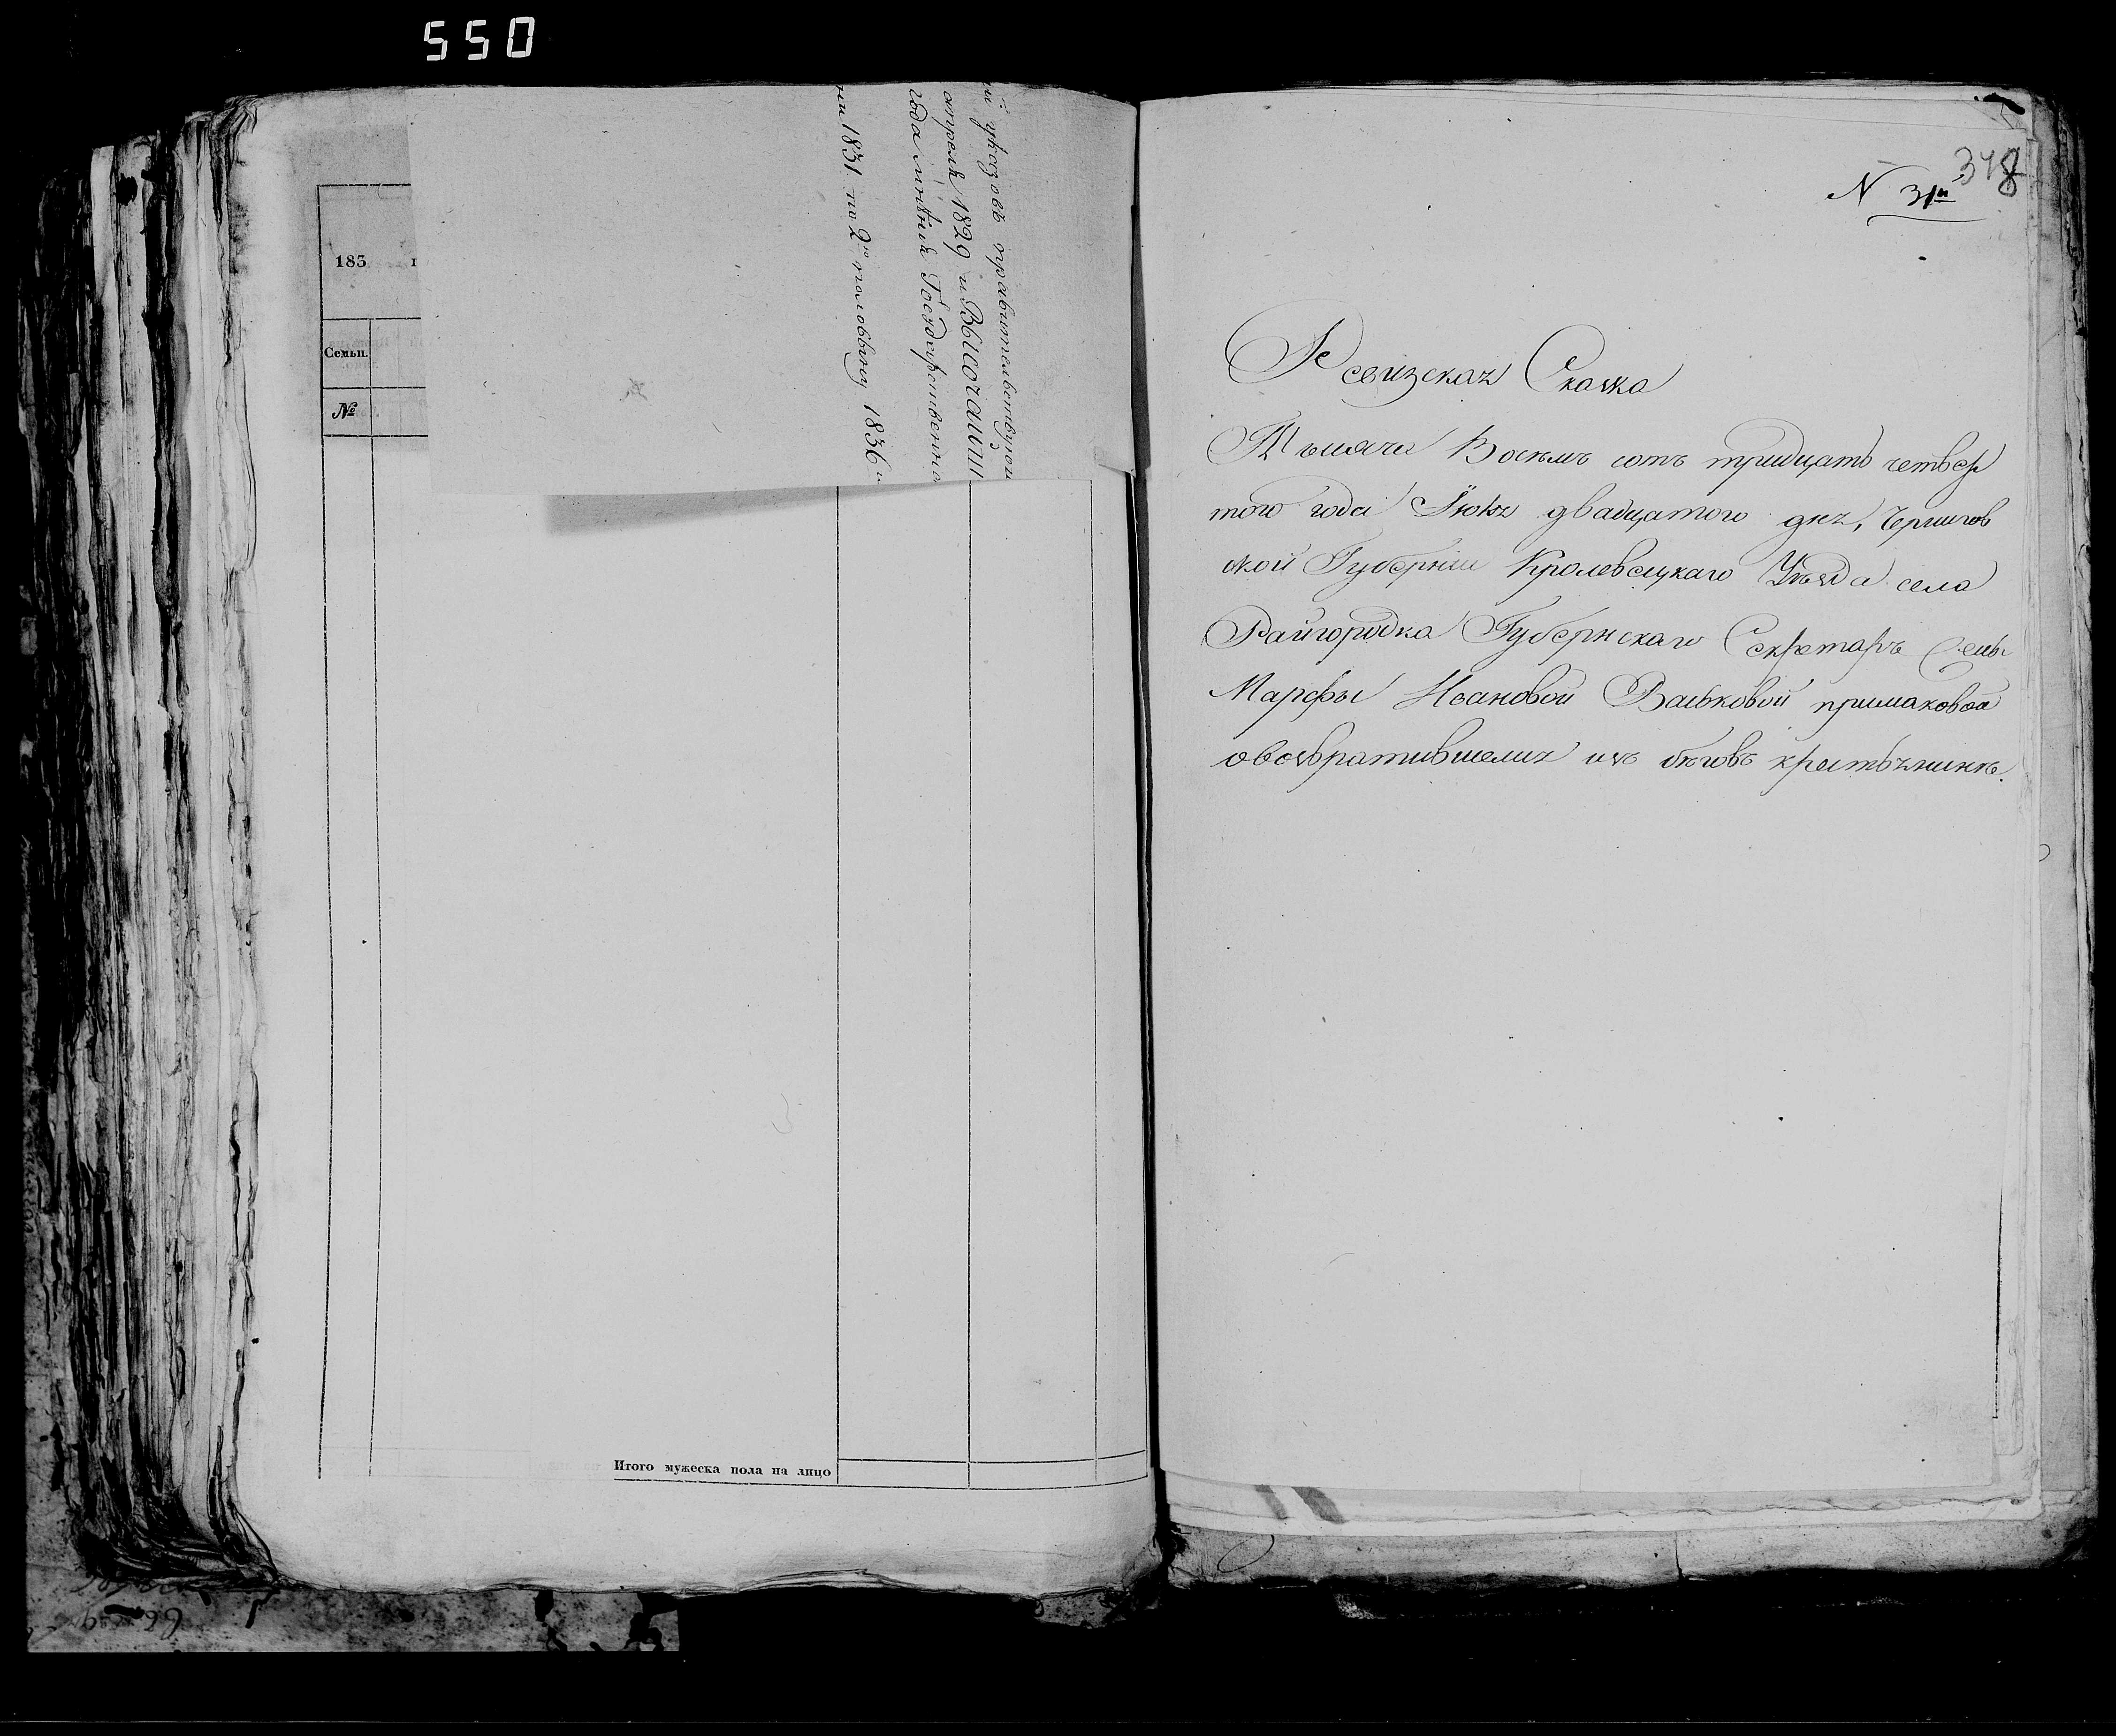 550
й указовъ правительствующ
апреля 1829 и Высочайш
года мнѣния Государственна
1831 по 2ю половину 1836
183
Семьи.
№
Итого мужеска пола на лицо
348
N 31й
Ревизская Сказка
Тысяча Восемь сотъ тридцать четвер
того года Іюля двадцатого дня, Чернигов
ской Губерніи Кролевецкаго Уѣзда села
Райгородка Губернскаго Секретаря
Марфы Ивановой Васьковой примаковой
овозвратившемся изъ бѣговъ крестьянинѣ.